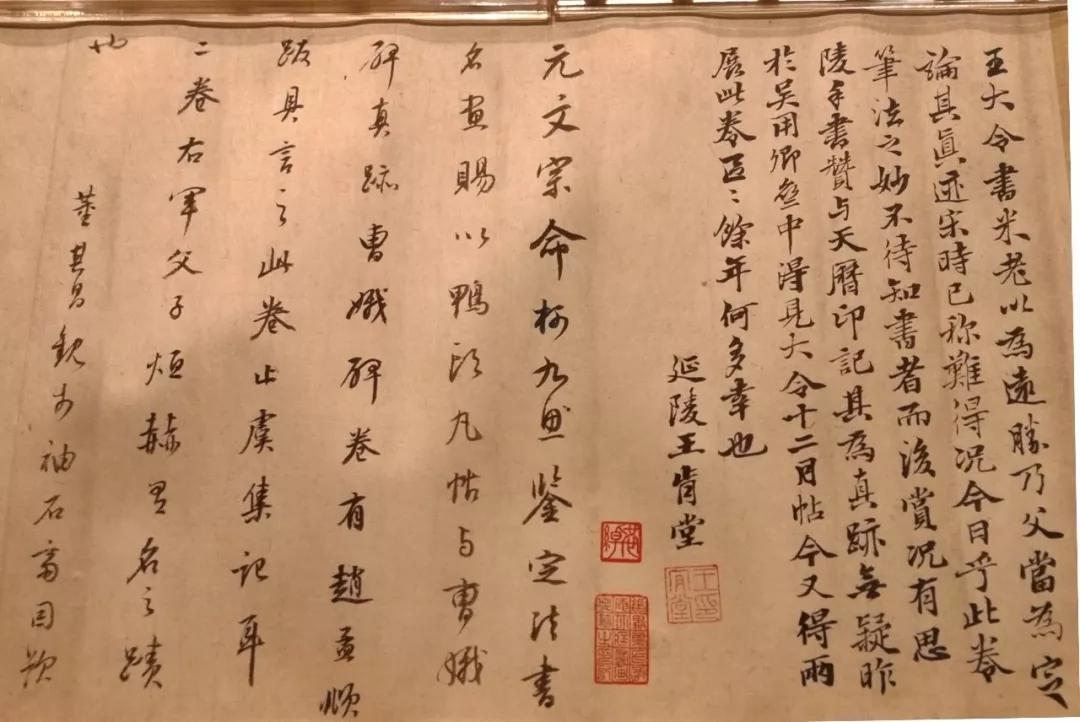 王大令書米老以為遠勝乃父當為定
論其眞迹宋時已称難得况今日乎此卷
筆法之妙不待知書者而後賞况有思
陵手書贊与天曆印記其為真跡無疑昨
於吴用卿家中得見大令十二月帖今又得兩
展此卷百二餘年何多幸也
延陵王肯堂
元文宗命柯九思鉴定法書
名画賜以鴨頭丸帖与曹娥
碑真跡曹娥碑卷有趙孟頫
跋具言之此卷止虞集記耳
二卷右軍父子烜赫有名之蹟
也
董其昌觀於袖石齋因題
王肯堂